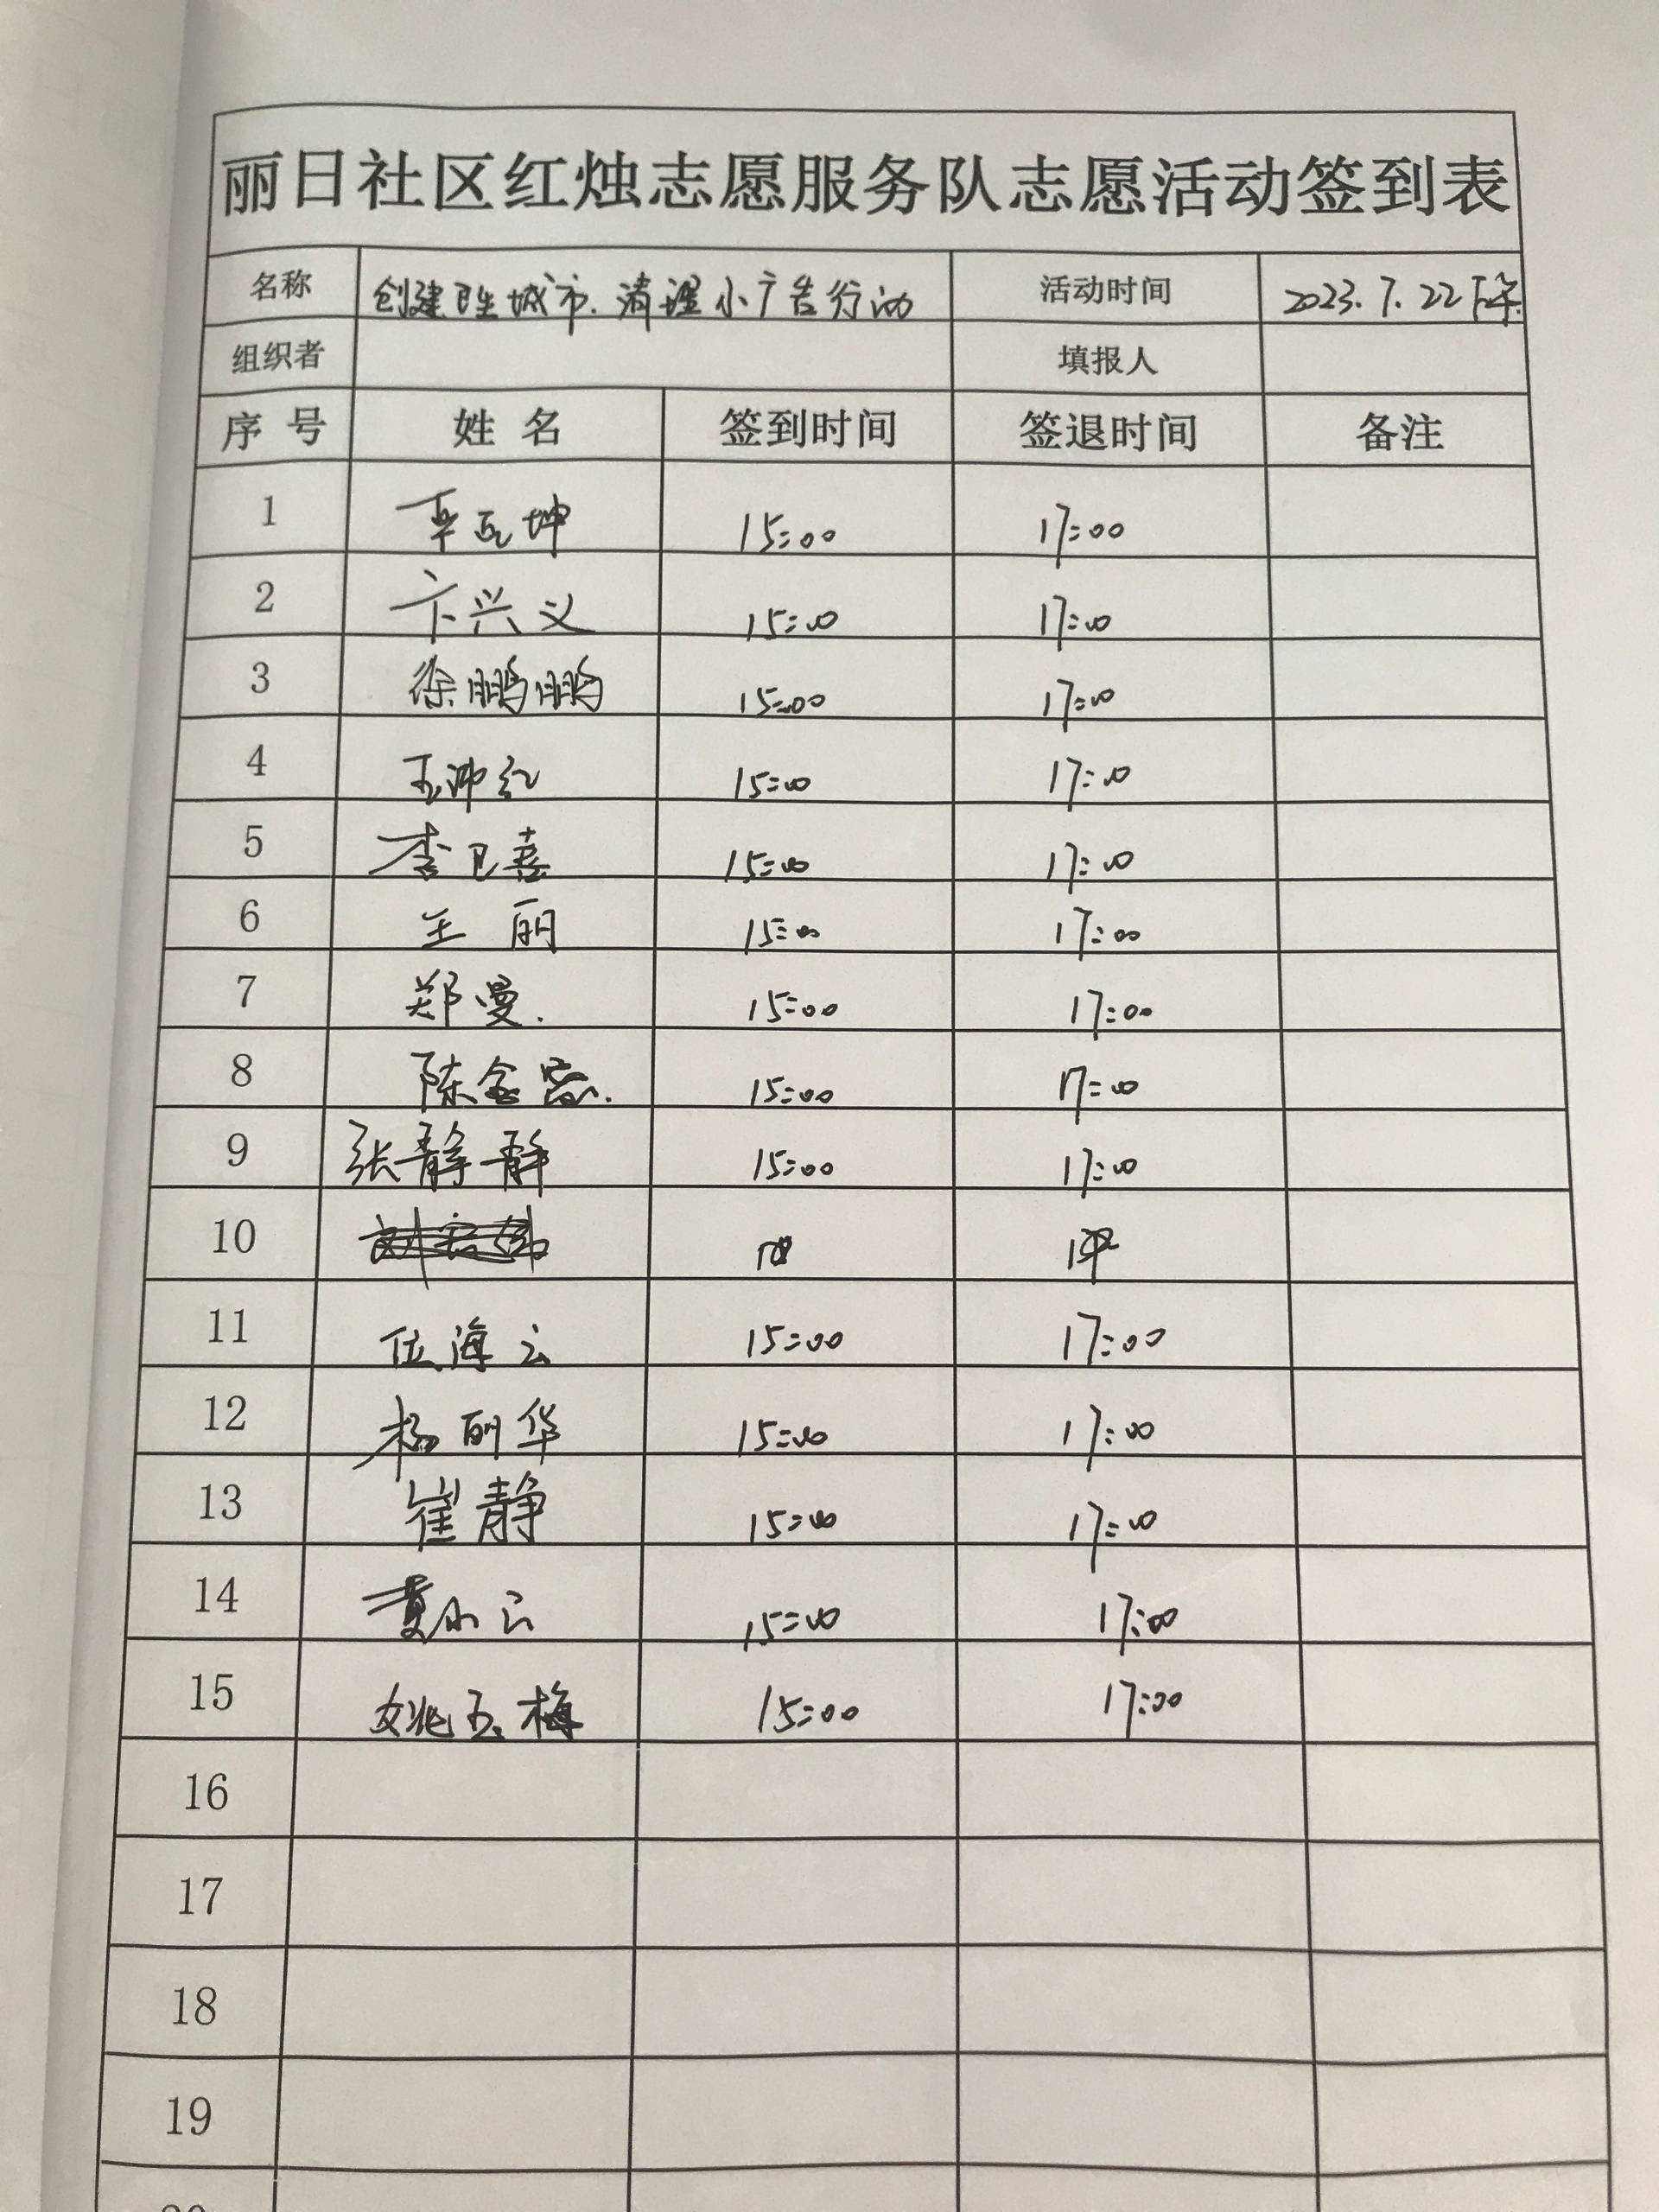 丽日社区红烛志愿服务队志愿活动签到表
名称 创建卫生城市.清理小广告行动 活动时间 2023.7.22下午.
组织者 填报人
序号 姓名 签到时间 签退时间 备注
1 坤 15:00 17:00
2 卞兴义 15:00 17:00
3 徐鹏鹏 15:00 17:00
4 王冲红 15:00 17:00
5 李卫喜 15:00 17:00
6 王丽 15:00 17:00
7 郑曼. 15:00 17:00
8 陈金 15:00 17:00
9 张静静 15:00 17:00
10
11 位海云 15:00 17:00
12 杨丽华 15:00 17:00
13 崔静 15:00 17:00
14 黄小云 15:00 17:00
15 姚玉梅 15:00 17:00
16
17
18
19